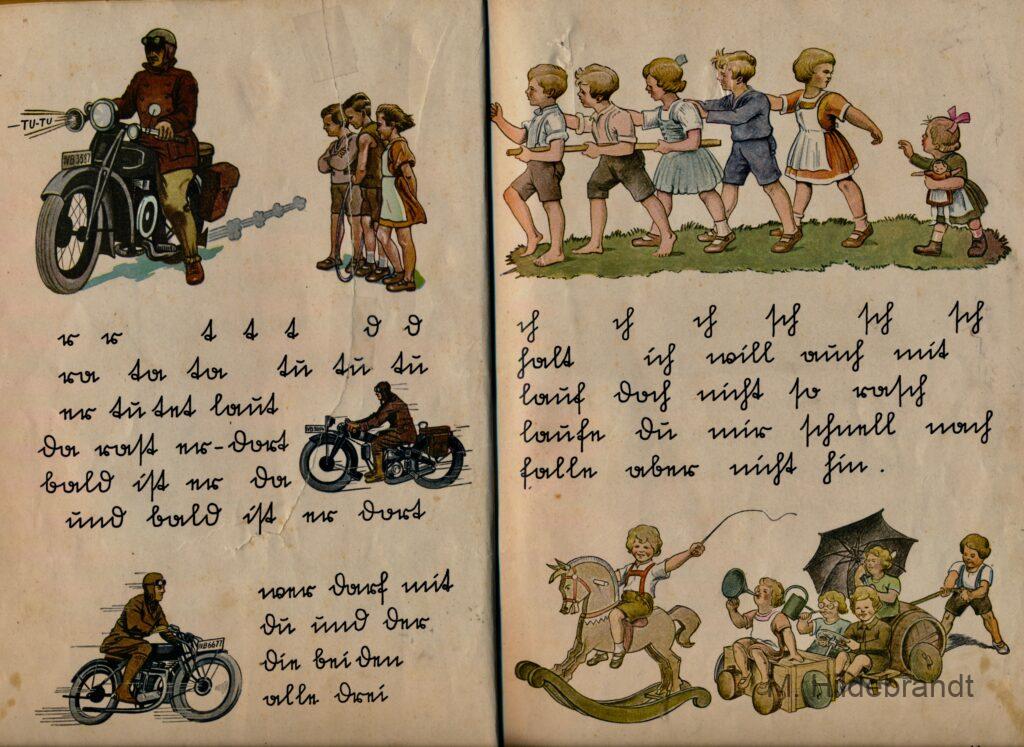 TU-TU
IVB3597
r r t t t d d
ra ta ta tu tu tu
er tu tet laut
da rast er-dort
bald ist er da
und bald ist er dort
wer darf mit
du und der
die bei den
alle drei
IVB6677
ch ch ch sch sch sch
halt ich will auch mit
lauf doch nicht so rasch
laufe du mir schnell nach
falle aber nicht hin.
M. Hildebrandt